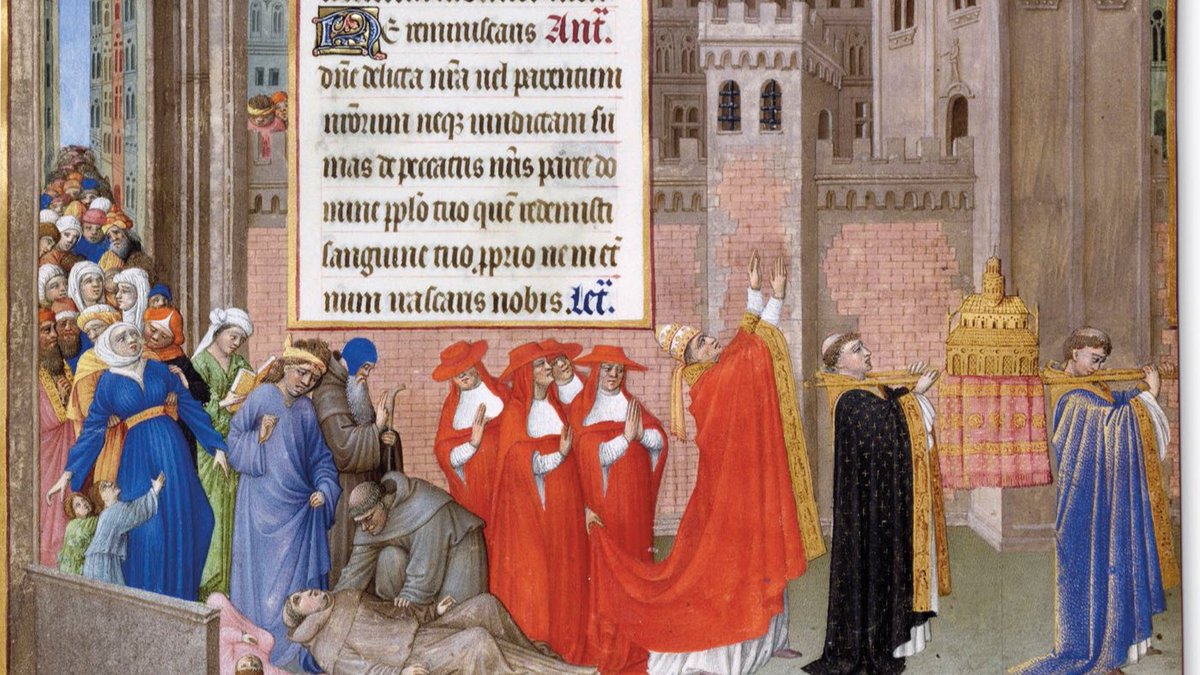 Ne reminiscaris Añt.
dñe delicta nr̃a uel parentum
nr̃orum neqꝫ uindictam su
mas de peccatis nr̃is parce do
mine ppl̃o tuo quẽ redemisti
sanguine tuo ꝓprio ne in et̃
num irascaris nobis. Let̃.